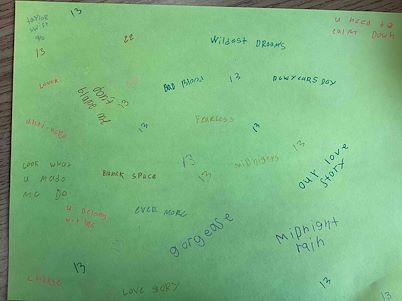 taylor
swift
13
u need to
calm down
22
WildEst DREAMS
13
LOVER
don't
blame me
BAD Blood
13
NEWYEARS DAY
anti-hero
13
FEARLESS
13
LOOK WHAT
u made
me do
BLANK SPACE
13
13
midnights
13
our love
story
u belong
with me
EVER MORE
gorgease
midnight
rain
change
13
LOVE STORY
13
13